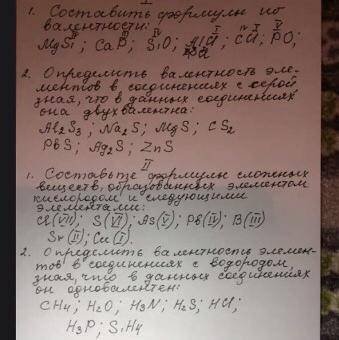 I
1. Составить формулы по
валентности: IV I V
MgSi; CaP; SiO; AlCl; CCl; PO;
2. Определить валентность эле-
ментов в соединениях с серой
зная, что в данных соединениях
она двухвалентна:
Al2S3; Na2S; MgS; CS2
PbS; Ag2S; ZnS
II
1. Составьте формулы сложных
веществ, образованных элементом
кислородом и следующими
элементами:
Cl(VII); S(VI); As(V); Pb(IV); B(III)
Sr(II); Cu(I).
2. Определить валентность элемен-
тов в соединениях с водородом
зная, что в данных соединениях
он одновалентен:
CH4; H2O; H3N; H2S; HCl;
H3P; SiH4